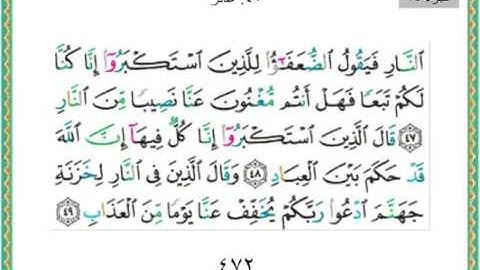 ٱلنَّارِ فَيَقُولُ ٱلضُّعَفَـٰٓؤُا۟ لِلَّذِينَ ٱسْتَكْبَرُوٓا۟ إِنَّا كُنَّا
لَكُمْ تَبَعًا فَهَلْ أَنتُم مُّغْنُونَ عَنَّا نَصِيبًا مِّنَ ٱلنَّارِ
٤٧ قَالَ ٱلَّذِينَ ٱسْتَكْبَرُوٓا۟ إِنَّا كُلٌّ فِيهَآ إِنَّ ٱللَّهَ
قَدْ حَكَمَ بَيْنَ ٱلْعِبَادِ ٤٨ وَقَالَ ٱلَّذِينَ فِى ٱلنَّارِ لِخَزَنَةِ
جَهَنَّمَ ٱدْعُوا۟ رَبَّكُمْ يُخَفِّفْ عَنَّا يَوْمًا مِّنَ ٱلْعَذَابِ ٤٩
٤٧٢